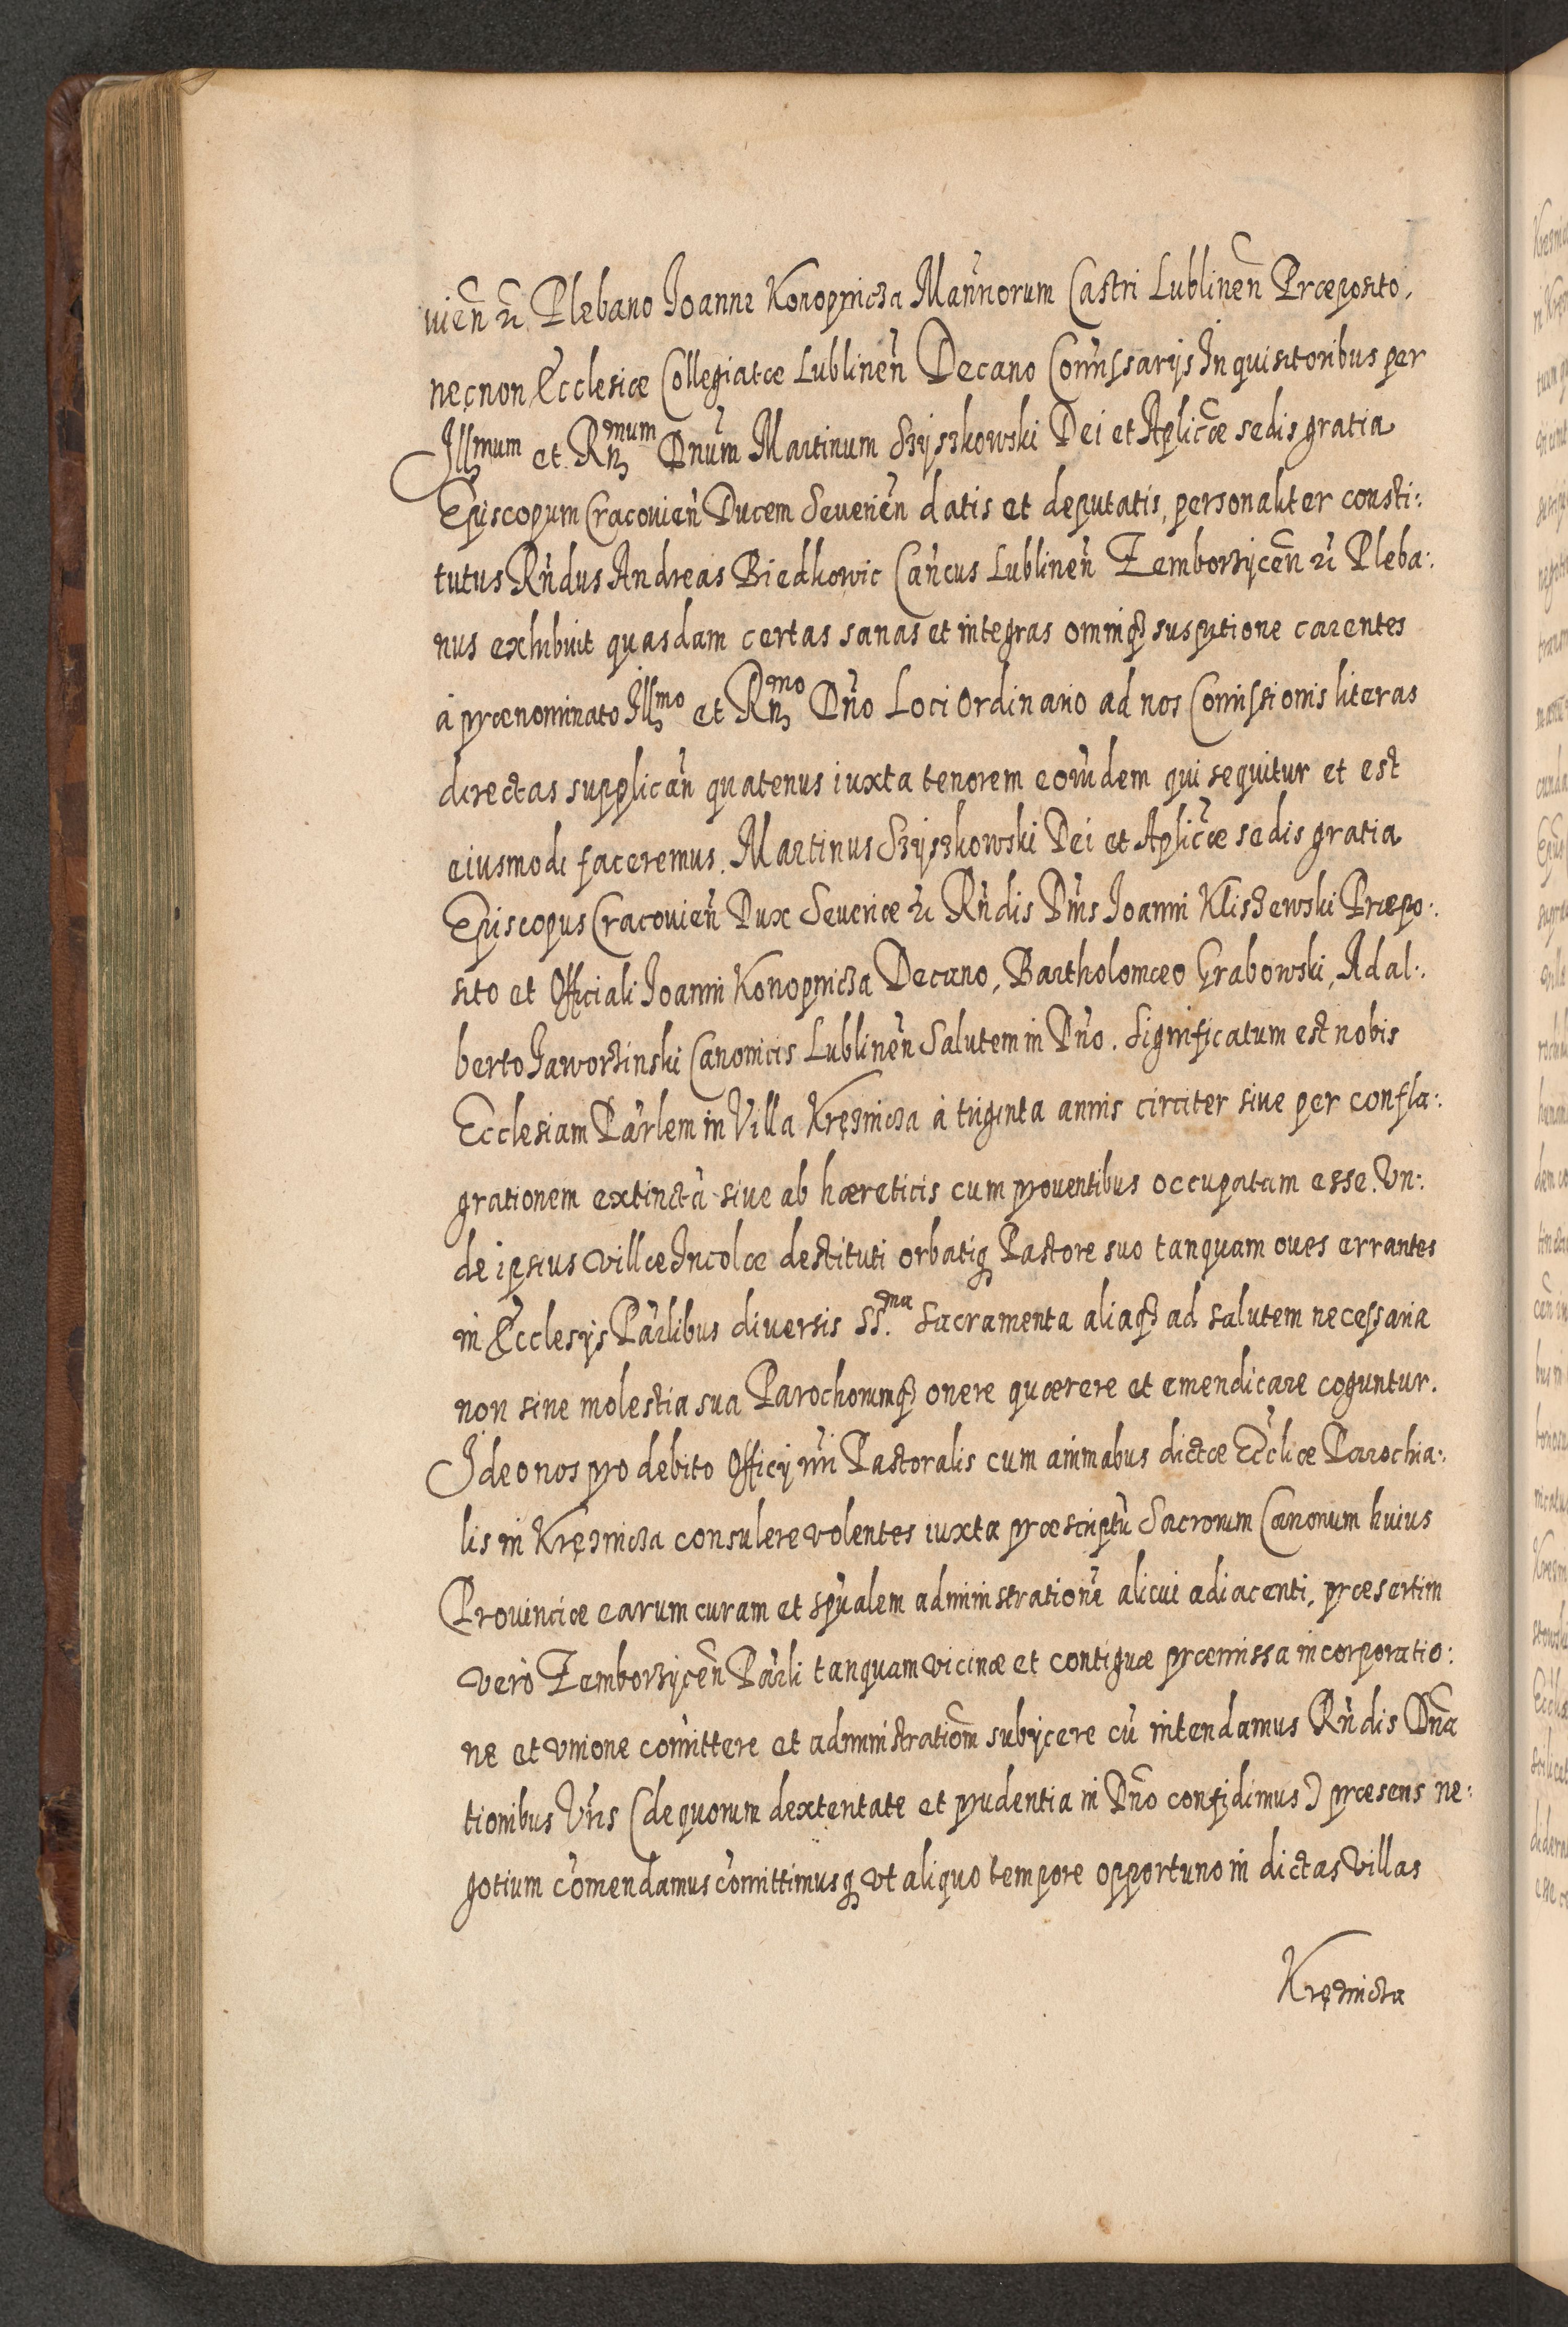 uien̄ &c Plebano Joanne Konopnicza Man̄norum Castri Lublinen̄ Præposito,
necnon Ecclesiæ Collegiatæ Lublinen̄ Decano Com̄issarijs Inquisitoribus per
Illmum et Rnmum Dnum̄ Martinum Szyszkowski Dei et Aplicæ sedis gratia
Episcopum Cracouien̄ Ducem Seuerien̄ datis et deputatis, personaliter consti:
tutus Rn̄dus Andreas Biedkowic Can̄cus Lublinen̄ Zemborzycen̄ &c Pleba:
nus exhibuit quasdam certas sanas et integras omniq3 suspitione carentes
à prænominato Illmo et Rnmo Dn̄o Loci Ordinario ad nos Com̄issionis literas
directas supplican̄ quatenus iuxta tenorem eorūdem qui sequitur et est
eiusmodi faceremus. Martinus Szyszkowski Dei et Aplicæ sedis gratia
Episcopus Cracouien̄ Dux Seueriæ &c Rn̄dis Dn̄is Joanni Kliszewski Præpo:
sito et Officiali Joanni Konopnicza Decano, Bartholomæo Grabowski, Adal:
berto Jaworzinski Canonicis Lublinen̄ Salutem in Dn̄o. Significatum est nobis
Ecclesiam Par̄lem in Villa Kręznicza à triginta annis circiter siue per confla:
grationem extinctā siue ab hæreticis cum prouentibus occupatam esse. Vn:
de ipsius Villæ Incolæ destituti orbatiq3 Pastore suo tanquam oues errantes
in Ecclesijs Par̄libus diuersis SS.ma Sacramenta aliaq3 ad salutem necessaria
non sine molestia sua Parochorumq3 onere quærere et emendicare coguntur.
Ideo nos pro debito Officij nr̄i Pastoralis cum animabus dictæ Eccliæ Parochia:
lis in Kręznicza consulere volentes iuxta præscriptū Sacrorum Canonum huius
Prouinciæ earum curam et spūalem administrationē alicui adiacenti, præsertim
verò Zemborzycen̄ Par̄li tanquam vicinæ et contiguæ præmissa incorporatio:
ne et vnione com̄ittere et administratiom̄ subijcere cū intendamus Rn̄dis Dn̄a
tionibus Vr̄is (de quorum dexteritate et prudentia in Dn̄o confidimus) præsens ne:
gotium com̄endamus com̄ittimusq3 vt aliquo tempore opportuno in dictas Villas
Kręznicza